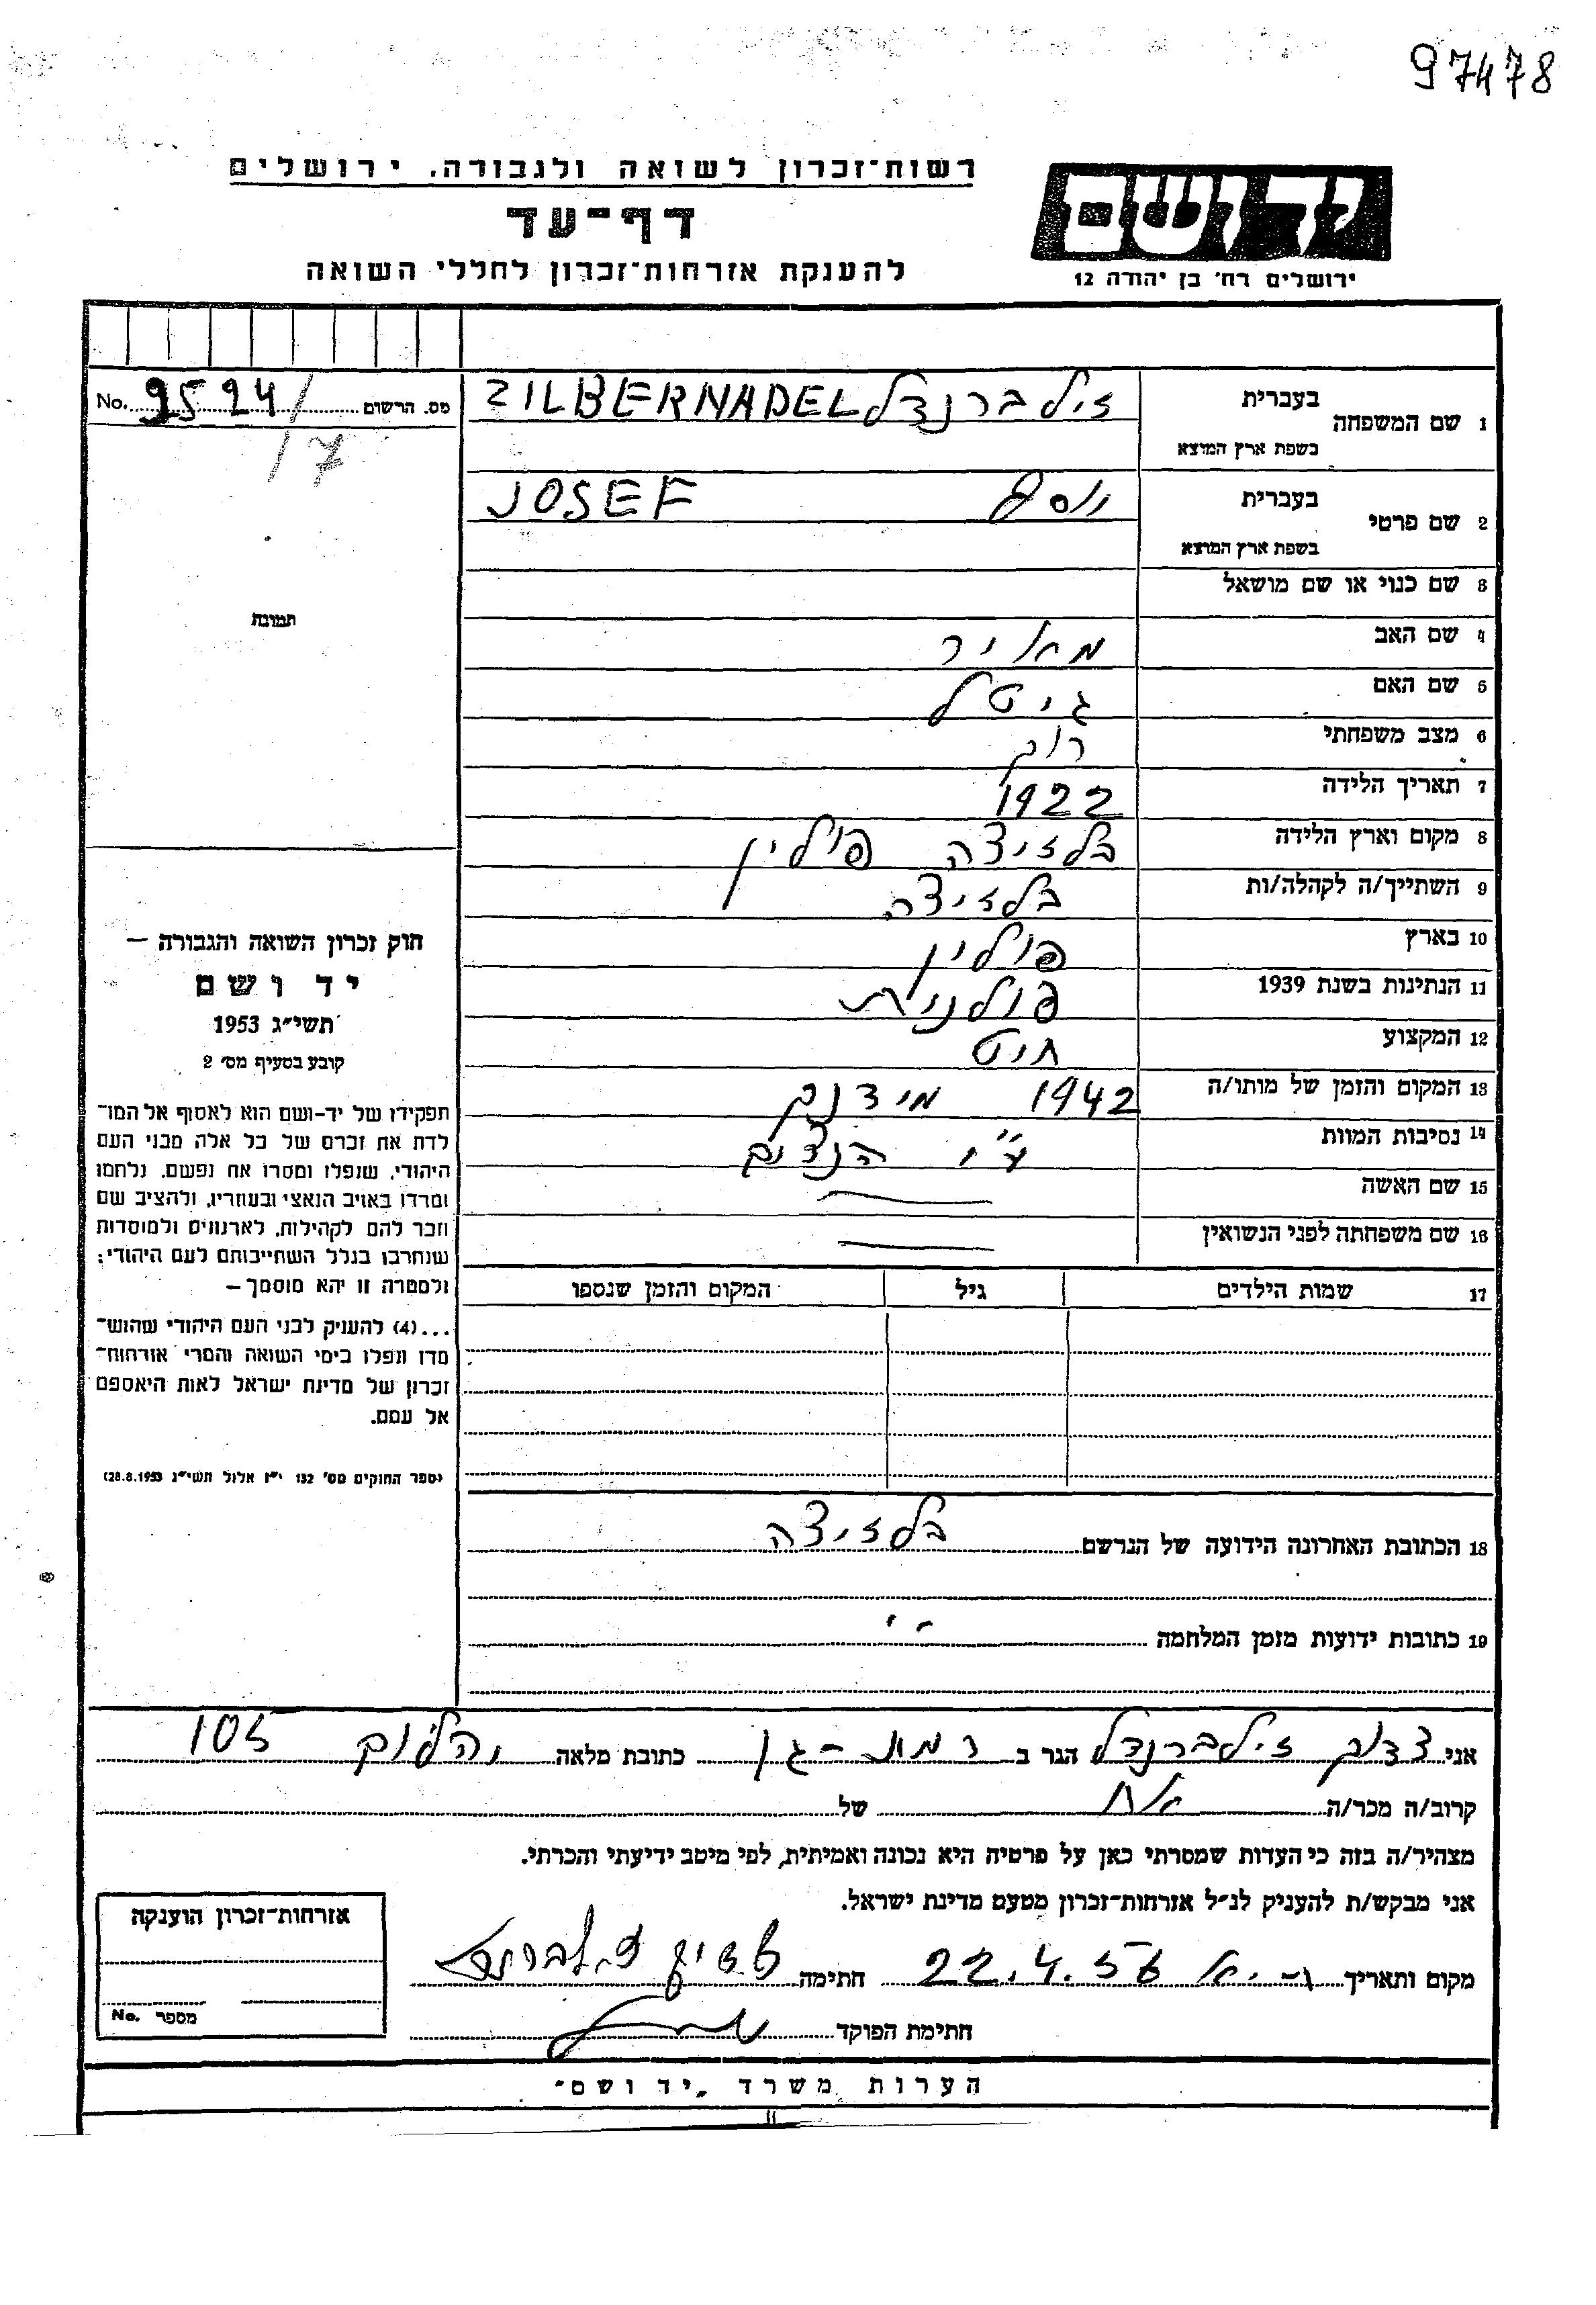 97478
רשות־זכרון לשואה ולגבורה. ירושלים
דף־עד
להענקת אזרחות־זכרון לחללי השואה
יד ושם
ירושלים רח' בן יהודה 12
מס. הרשום 9524/ No.
17
1 שם המשפחה בעברית זילברנדל ZILBERNADEL
בשפת ארץ המוצא
2 שם פרטי בעברית יוסף JOSEF
בשפת ארץ המוצא
3 שם כנוי או שם מושאל
4 שם האב מאיר
5 שם האם גיטל
6 מצב משפחתי רוק
7 תאריך הלידה 1922
8 מקום וארץ הלידה בלזיצה פולין
9 השתייך/ה לקהלה/ות בלזיצה
10 בארץ פולין
11 הנתינות בשנת 1939 פולנית
12 המקצוע חיט
13 המקום והזמן של מותו/ה 1942 מידנק
14 נסיבות המוות ע"י הנצים
15 שם האשה
16 שם משפחתה לפני הנשואין
17 שמות הילדים גיל המקום והזמן שנספו
18 הכתובת האחרונה הידועה של הנרשם בלזיצה
19 כתובות ידועות מזמן המלחמה "
תמונה
חוק זכרון השואה והגבורה —
יד ושם
תשי״ג 1953
קובע בסעיף מס' 2
תפקידו של יד-ושם הוא לאסוף אל המו־
לדת את זכרם של כל אלה מבני העם
היהודי, שנפלו ומסרו את נפשם, נלחמו
ומרדו באויב הנאצי ובעוזריו, ולהציב שם
וזכר להם לקהילות, לארגונים ולמוסדות
שנחרבו בגלל השתייכותם לעם היהודי;
ולמטרה זו יהא מוסמך —
...(4) להעניק לבני העם היהודי שהוש־
מדו ונפלו בימי השואה והמרי אזרחות־
זכרון של מדינת ישראל לאות היאספם
אל עמם.
(ספר החוקים מס' 132 י״ז אלול תשי״ג 28.8.1953)
אני צדוק זילברנדל הגר ב רמת-גן כתובת מלאה יהלום 105
קרוב/ה מכר/ה אח של
מצהיר/ה בזה כי העדות שמסרתי כאן על פרטיה היא נכונה ואמיתית, לפי מיטב ידיעתי והכרתי.
אני מבקש/ת להעניק לנ״ל אזרחות־זכרון מטעם מדינת ישראל.
מקום ותאריך 22.4.56 חתימה
חתימת הפוקד
אזרחות־זכרון הוענקה
מספר No.
הערות משרד „יד ושם״